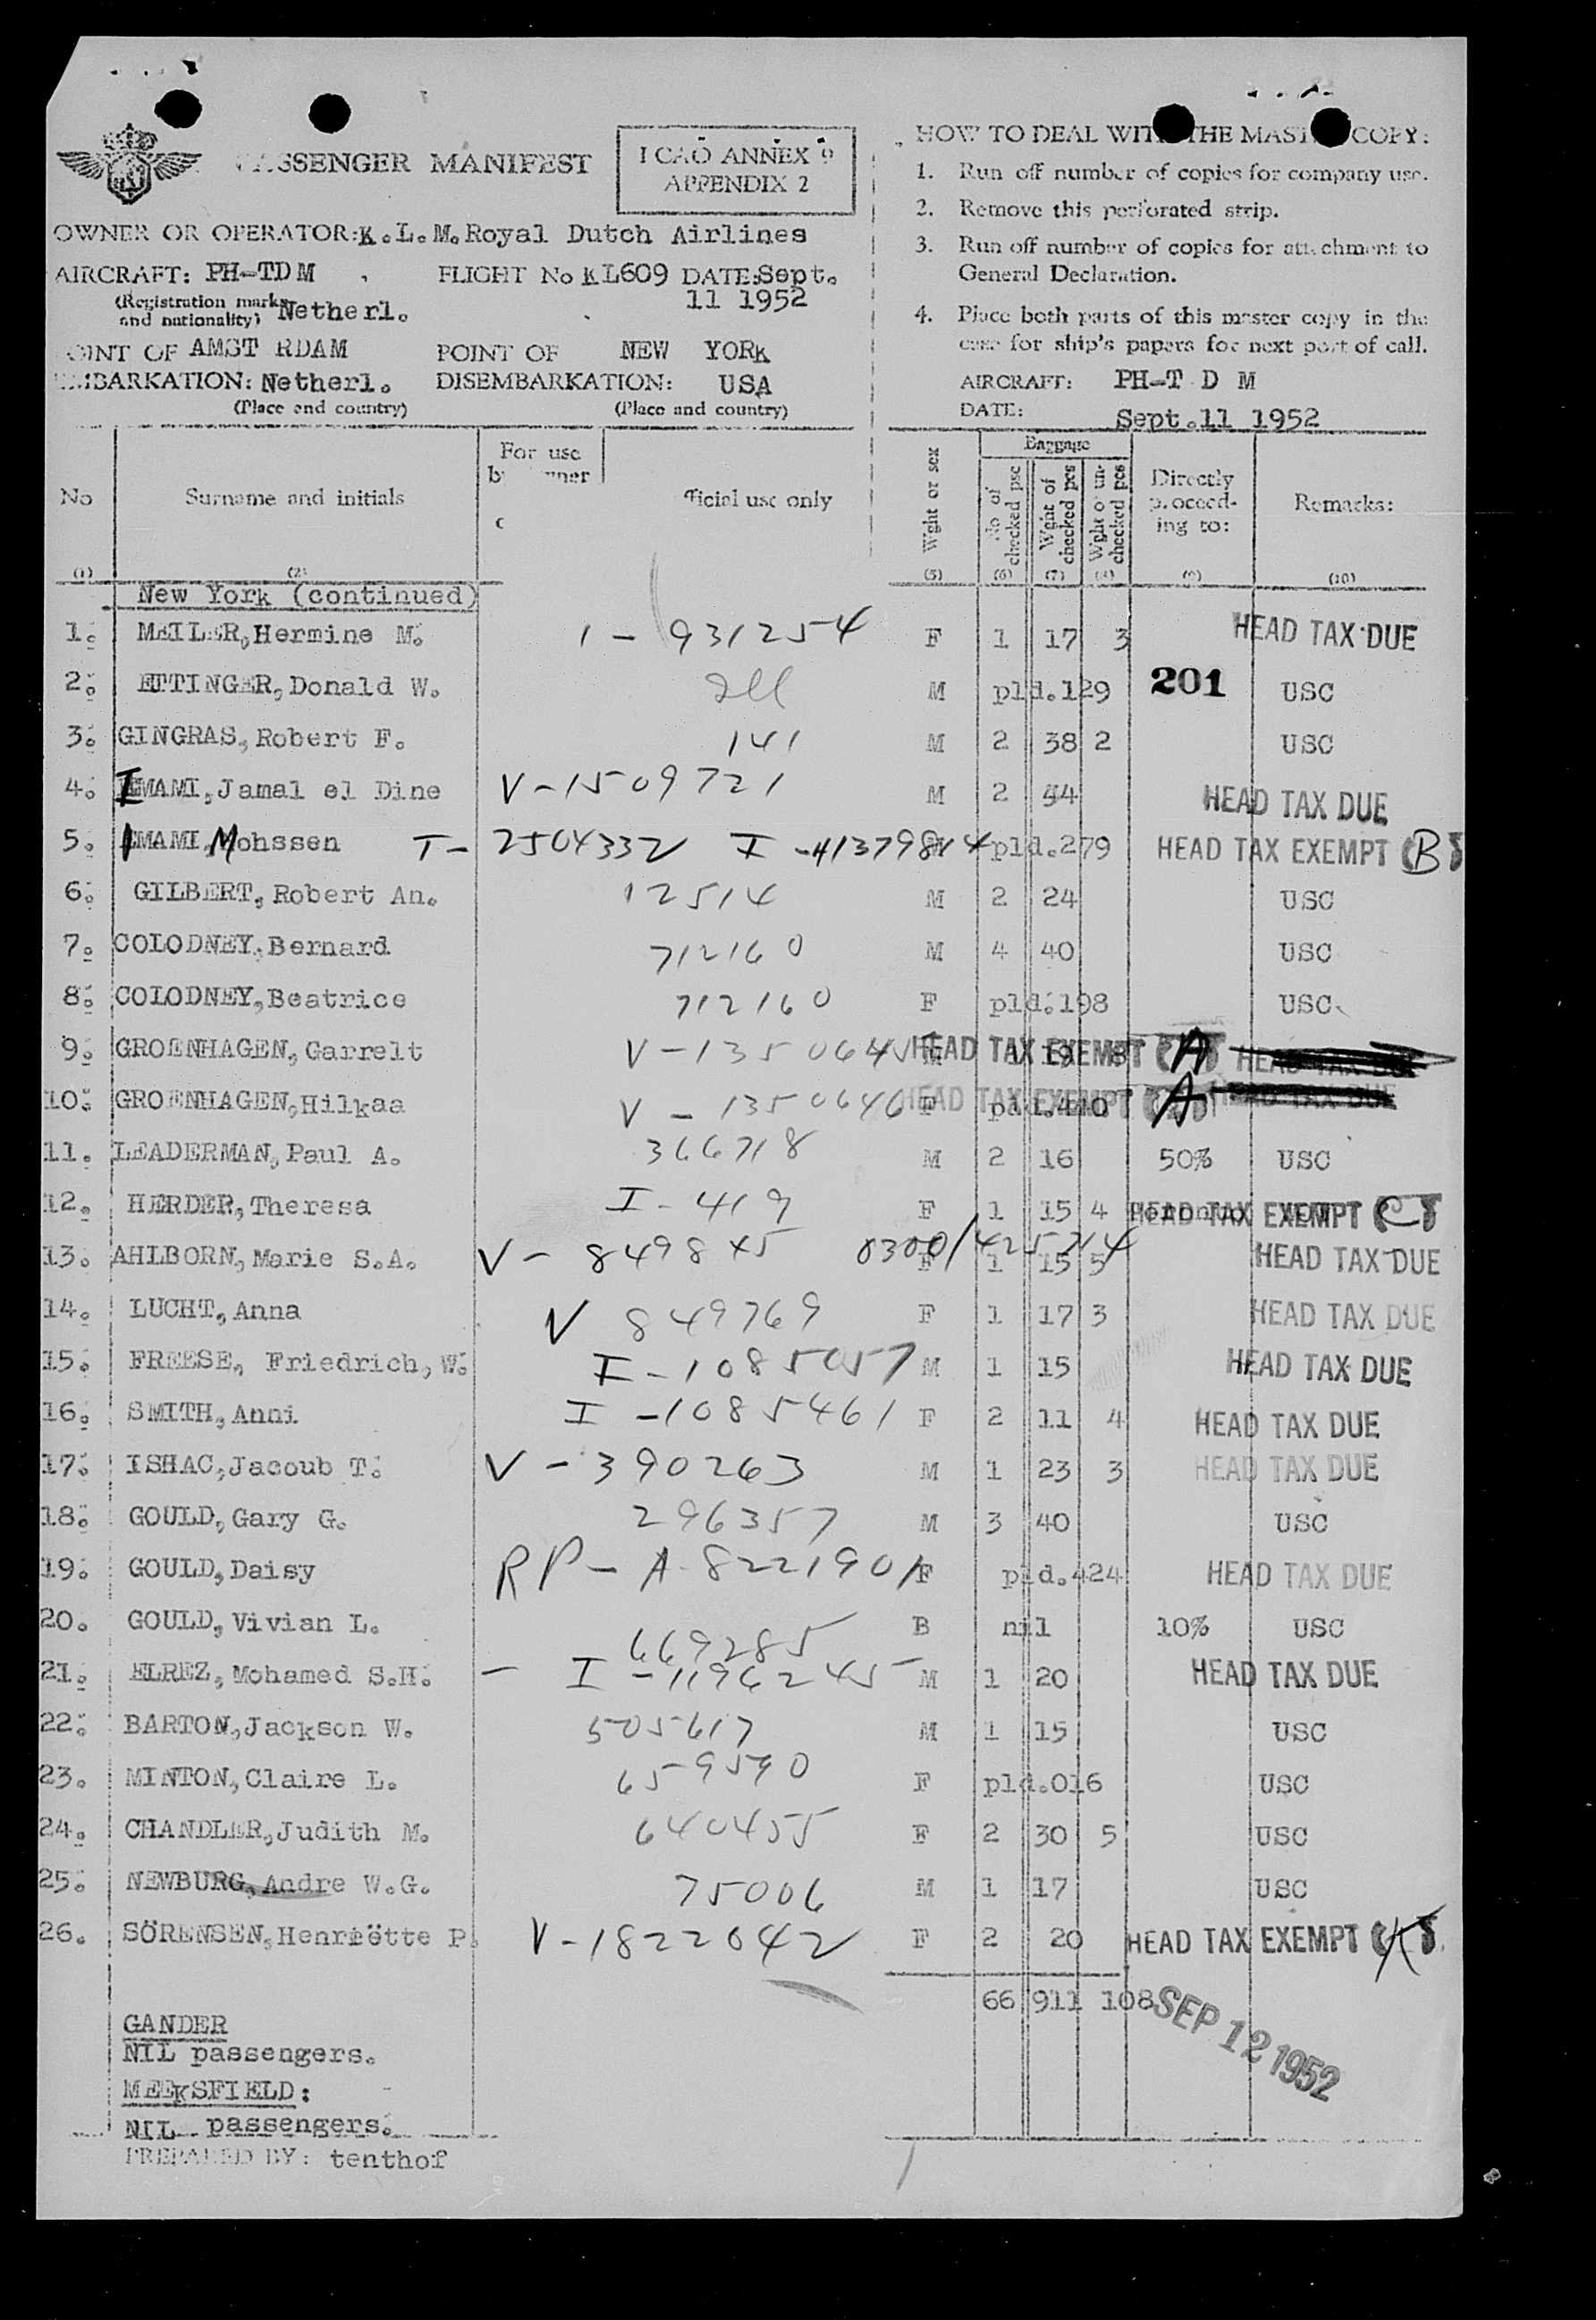 PASSENGER MANIFEST
ICAO ANNEX 9
APPENDIX 2
OWNER OR OPERATOR: K.L.M. Royal Dutch Airlines
AIRCRAFT: PH-TDM FLIGHT No KL609 DATE: Sept.
11 1952
(Registration marks
and nationality) Netherl.
POINT OF AMST RDAM POINT OF NEW YORK
EMBARKATION: Netherl. DISEMBARKATION: USA
(Place and country) (Place and country)
HOW TO DEAL WITH THE MASTER COPY:
1. Run off number of copies for company use.
2. Remove this perforated strip.
3. Run off number of copies for attachment to
General Declaration.
4. Place both parts of this master copy in the
case for ship's papers for next port of call.
AIRCRAFT: PH-T D M
DATE: Sept.11 1952
No Surname and initials For use official use only Wght or sex Baggage No of checked psc Wght of checked pcs Wght of un-checked pcs Directly proceeding to: Remarks:
(1) (2) (5) (6) (7) (8) (9) (10)
New York (continued)
1. MEILER, Hermine M. 1 - 931254 F 1 17 3 HEAD TAX DUE
2. ETTINGER, Donald W. M pld.129 201 USC
3. GINGRAS, Robert F. 141 M 2 38 2 USC
4. IMAMI, Jamal el Dine V-1509721 M 2 44 HEAD TAX DUE
5. IMAMI, Mohssen T-2504332 I- pld.279 HEAD TAX EXEMPT (B)
6. GILBERT, Robert An. 12514 M 2 24 USC
7. COLODNEY, Bernard 712160 M 4 40 USC
8. COLODNEY, Beatrice 712160 F pld.198 USC
9. GROENHAGEN, Garrelt V-1350645 HEAD TAX EXEMPT A
10. GROENHAGEN, Hilkaa V-1350646 F HEAD TAX EXEMPT pld.410 A HEAD TAX DUE
11. LEADERMAN, Paul A. 366718 M 2 16 50% USC
12. HERDER, Theresa I-419 F 1 15 4 HEAD TAX EXEMPT (C)
13. AHLBORN, Marie S.A. V-849845 0300/425214 F 1 15 5 HEAD TAX DUE
14. LUCHT, Anna V 849769 F 1 17 3 HEAD TAX DUE
15. FREESE, Friedrich, W. I-1085057 M 1 15 HEAD TAX DUE
16. SMITH, Anni I-1085461 F 2 11 4 HEAD TAX DUE
17. ISHAC, Jacoub T. V-390263 M 1 23 3 HEAD TAX DUE
18. GOULD, Gary G. 296357 M 3 40 USC
19. GOULD, Daisy RP-A-8221901 F pld.424 HEAD TAX DUE
20. GOULD, Vivian L. 669285 B nil 10% USC
21. ELREZ, Mohamed S.H. - I-1196245- M 1 20 HEAD TAX DUE
22. BARTON, Jackson W. 505617 M 1 15 USC
23. MINTON, Claire L. 659590 F pld.016 USC
24. CHANDLER, Judith M. 640455 F 2 30 5 USC
25. NEWBURG, Andre W.G. 75006 M 1 17 USC
26. SÖRENSEN, Henriëtte P. V-1822042 F 2 20 HEAD TAX EXEMPT (K)
66 911 108
SEP 12 1952
GANDER
NIL passengers.
MEEKSFIELD:
NIL passengers.
PREPARED BY: tenthof